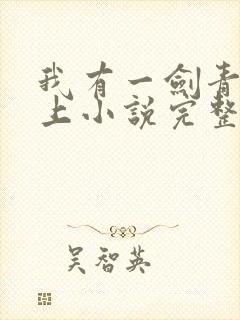 我有一劍青
上小說完整
吳智英